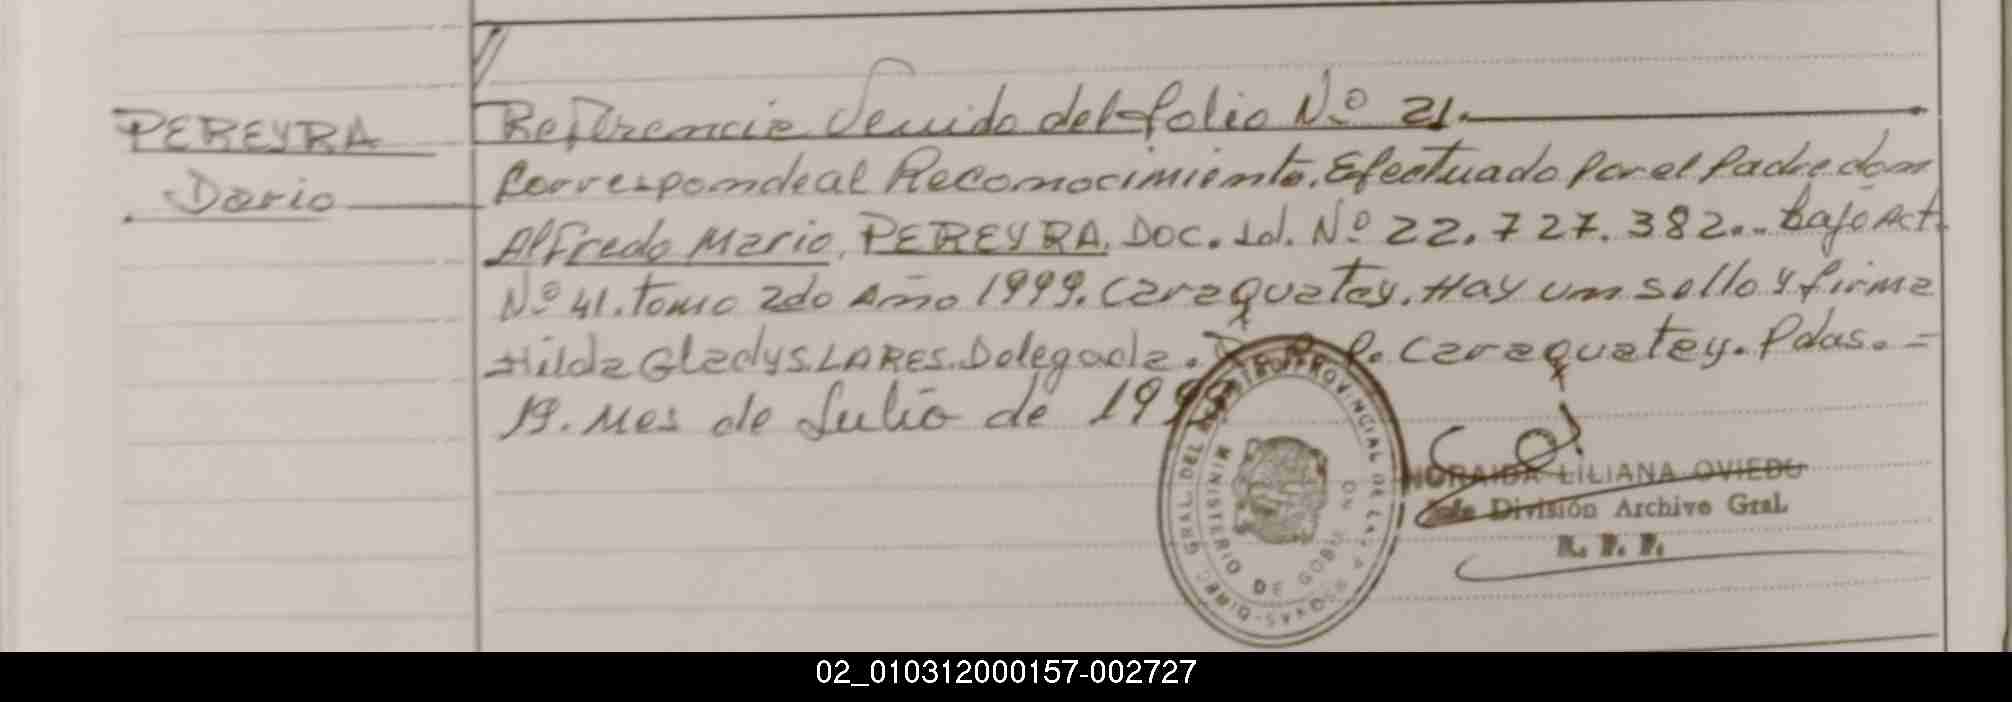 PEREYRA
Dario
Referencia Venido del folio Nº 21.
Corresponde al Reconocimiento. Efectuado Por el Padre don
Alfredo Mario. PEREYRA. Doc. Id. Nº 22.727.382.. bajo Act.
Nº 41. tomo 2do Año 1999. Caraguatay. Hay un sello y firma
Hilda Gladys. LARES. Delegada. R. P. Caraguatay. Pdas. =
19. Mes de Julio de 1999
DIREC. GRAL. DEL REGISTRO PROVINCIAL DE LAS PERSONAS
MINISTERIO DE GOBIERNO
NORAIDA LILIANA OVIEDO
Jefe División Archivo Gral.
R. P. P.
02_010312000157-002727